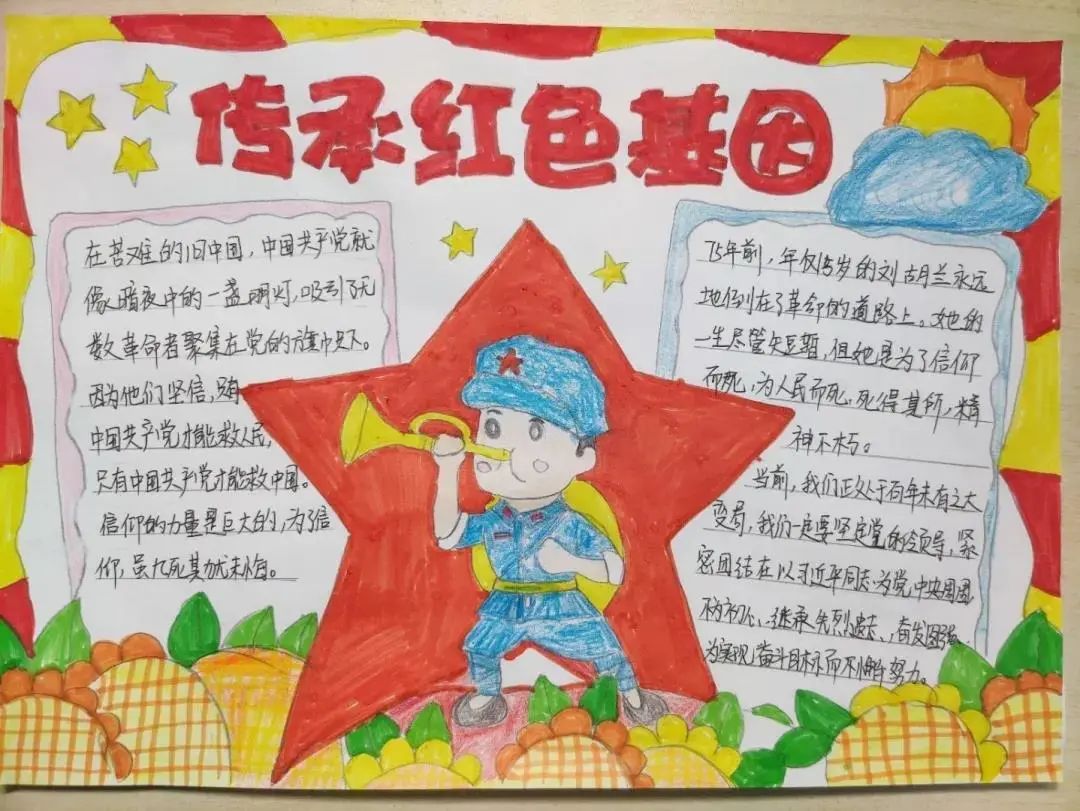 传承红色基因
在苦难的旧中国，中国共产党就
像暗夜中的一盏明灯，吸引了无
数革命者聚集在党的旗帜下。
因为他们坚信，只有
中国共产党才能救人民，
只有中国共产党才能救中国。
信仰的力量是巨大的，为了信
仰，虽九死其尤未悔。
75年前，年仅15岁的刘胡兰永远
地倒在了革命的道路上。她的
一生尽管短暂，但她是为了信仰
而死，为人民而死，死得其所，精
神不朽。
当前，我们正处于百年未有之大
变局，我们一定要坚定党的领导，紧
密团结在以习近平同志为党中央周围
初心、继承先烈遗志、奋发图强、
为实现奋斗目标而不懈努力。